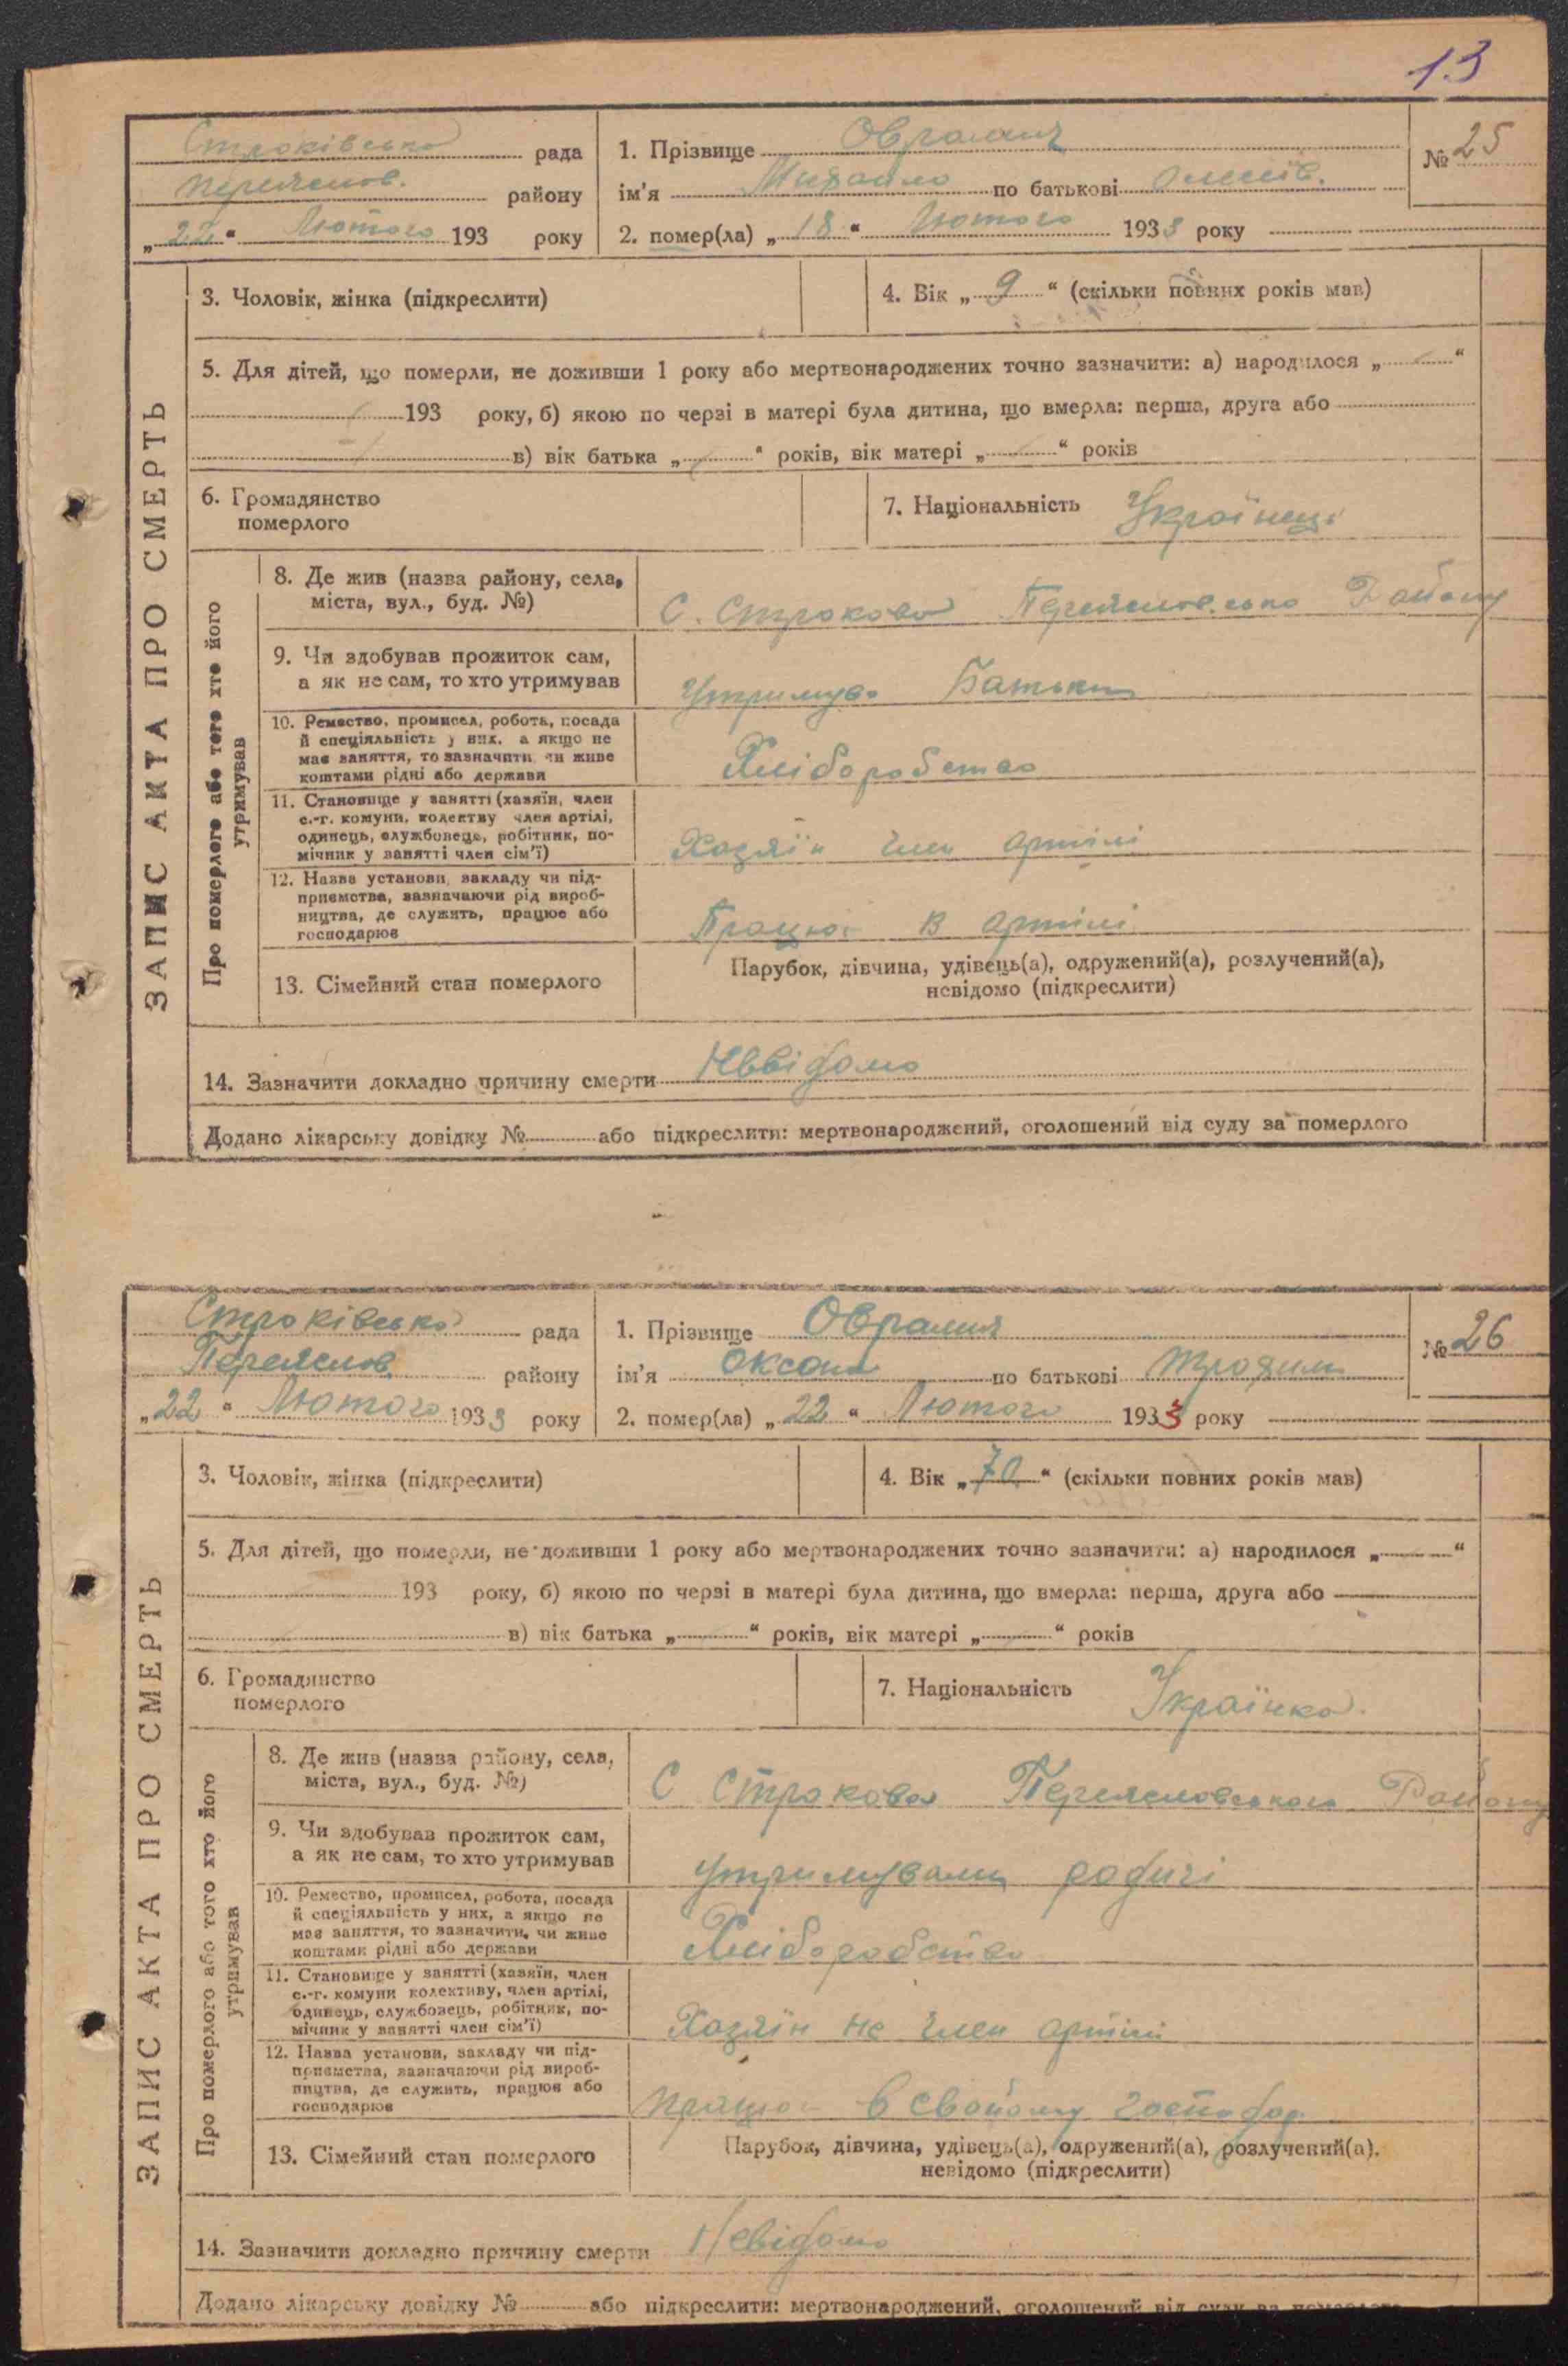 13
Строківська рада
Переяслов. району
„22“ Лютого 193 року
1. Прізвище Оврамич
ім'я Михайло по батькові
2. помер(ла) „18“ Лютого 1933 року
№ 25
ЗАПИС АКТА ПРО СМЕРТЬ
3. Чоловік, жінка (підкреслити)
4. Вік „9“ (скільки повних років мав)
5. Для дітей, що померли, не доживши 1 року або мертвонароджених точно зазначити: а) народилося „ “
193 року, б) якою по черзі в матері була дитина, що вмерла: перша, друга або
в) вік батька „ “ років, вік матері „ “ років
6. Громадянство
померлого
7. Національність Українець
Про померлого або того хто його
утримував
8. Де жив (назва району, села,
міста, вул., буд. №)
С. Строкова Переясловсько Району
9. Чи здобував прожиток сам,
а як не сам, то хто утримував
Утримував Батько
10. Ремество, промисел, робота, посада
й спеціяльність у них, а якщо не
має заняття, то зазначити чи живе
коштами рідні або держави
Хліборобство
11. Становище у занятті (хазяїн, член
с.-г. комуни, колективу член артілі,
одинець, службовець, робітник, по-
мічник у занятті член сім'ї)
Хазяїн член артілі
12. Назва установи, закладу чи під-
приємства, зазначаючи рід вироб-
ництва, де служить, працює або
господарює
Працює в артілі
13. Сімейний стан померлого
Парубок, дівчина, удівець(а), одружений(а), розлучений(а),
невідомо (підкреслити)
14. Зазначити докладно причину смерти Невідомо
Додано лікарську довідку № або підкреслити: мертвонароджений, оголошений від суду за померлого
Строківська рада
Переяслов району
„22“ Лютого 1933 року
1. Прізвище Оврамич
ім'я Оксана по батькові Трохим
2. помер(ла) „22“ Лютого 1933 року
№ 26
ЗАПИС АКТА ПРО СМЕРТЬ
3. Чоловік, жінка (підкреслити)
4. Вік „70“ (скільки повних років мав)
5. Для дітей, що померли, не доживши 1 року або мертвонароджених точно зазначити: а) народилося „ “
193 року, б) якою по черзі в матері була дитина, що вмерла: перша, друга або
в) вік батька „ “ років, вік матері „ “ років
6. Громадянство
померлого
7. Національність Українка
Про померлого або того хто його
утримував
8. Де жив (назва району, села,
міста, вул., буд. №)
С Строкова Переясловського Району
9. Чи здобував прожиток сам,
а як не сам, то хто утримував
утримували родичі
10. Ремество, промисел, робота, посада
й спеціяльність у них, а якщо не
має заняття, то зазначити, чи живе
коштами рідні або держави
Хліборобство
11. Становище у занятті (хазяїн, член
с.-г. комуни колективу, член артілі,
одинець, службовець, робітник, по-
мічник у занятті член сім'ї)
Хазяїн не член артілі
12. Назва установи, закладу чи під-
приємства, зазначаючи рід вироб-
ництва, де служить, працює або
господарює
працює в свойому господар
13. Сімейний стан померлого
Парубок, дівчина, удівець(а), одружений(а), розлучений(а),
невідомо (підкреслити)
14. Зазначити докладно причину смерти Невідомо
Додано лікарську довідку № або підкреслити: мертвонароджений, оголошений від суду за померлого